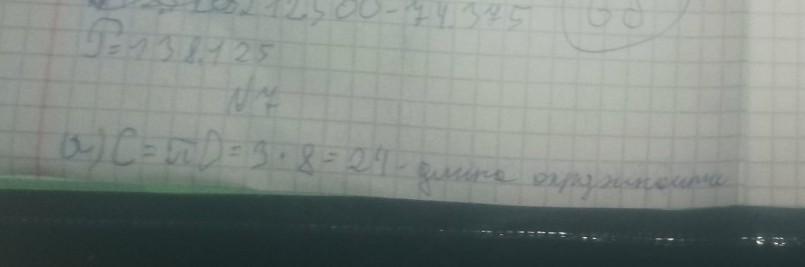 212,500-74,375
T=138,125
N7
а) C=πD=3·8=24- длина окружности